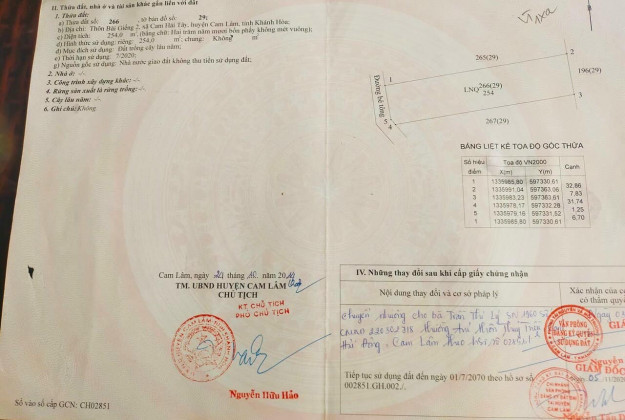 II. Thửa đất, nhà ở và tài sản khác gắn liền với đất
1. Thửa đất:
a) Thửa đất số: 266 tờ bản đồ số: 29;
b) Địa chỉ: Thôn Bãi Giếng 2, xã Cam Hải Tây, huyện Cam Lâm, tỉnh Khánh Hòa;
c) Diện tích: 254.0 m², (bằng chữ: Hai trăm năm mươi bốn phẩy không mét vuông);
d) Hình thức sử dụng: riêng: 254.0 m²; chung: Không
đ) Mục đích sử dụng: Đất trồng cây lâu năm;
e) Thời hạn sử dụng: 7/2020;
g) Nguồn gốc sử dụng: Nhà nước giao đất không thu tiền sử dụng đất;
2. Nhà ở: -/-
3. Công trình xây dựng khác: -/-
4. Rừng sản xuất là rừng trồng: -/-
5. Cây lâu năm: -/-
6. Ghi chú: Không
265(29)
196(29)
LNQ 266(29)
254
267(29)
Đường bê tông
1
2
3
4
5
BẢNG LIỆT KÊ TỌA ĐỘ GÓC THỬA
Số hiệu điểm
Tọa độ VN2000
Cạnh
X(m)
Y(m)
1 1335985,80 597330.61
32,86
2 1335991,04 597363.06
7,83
3 1335983,23 597363,61
31,74
4 1335978,17 597332,28
1,25
5 1335979,16 597331,52
6,70
1 1335985,80 597330.61
Cam Lâm, ngày tháng năm
TM. UBND HUYỆN CAM LÂM
CHỦ TỊCH
KT. CHỦ TỊCH
PHÓ CHỦ TỊCH
Nguyễn Hữu Hảo
Số vào sổ cấp GCN: CH02851
IV. Những thay đổi sau khi cấp giấy chứng nhận
Nội dung thay đổi và cơ sở pháp lý
Xác nhận của
có thẩm quyền
Chuyển nhượng cho bà Trần Thị
Cam Lâm theo
VĂN PHÒNG
ĐĂNG KÝ QUYỀN
SỬ DỤNG ĐẤT
GIÁM ĐỐC
Tiếp tục sử dụng đất đến ngày 01/7/2070 theo hồ sơ số
002851.GH.002./.